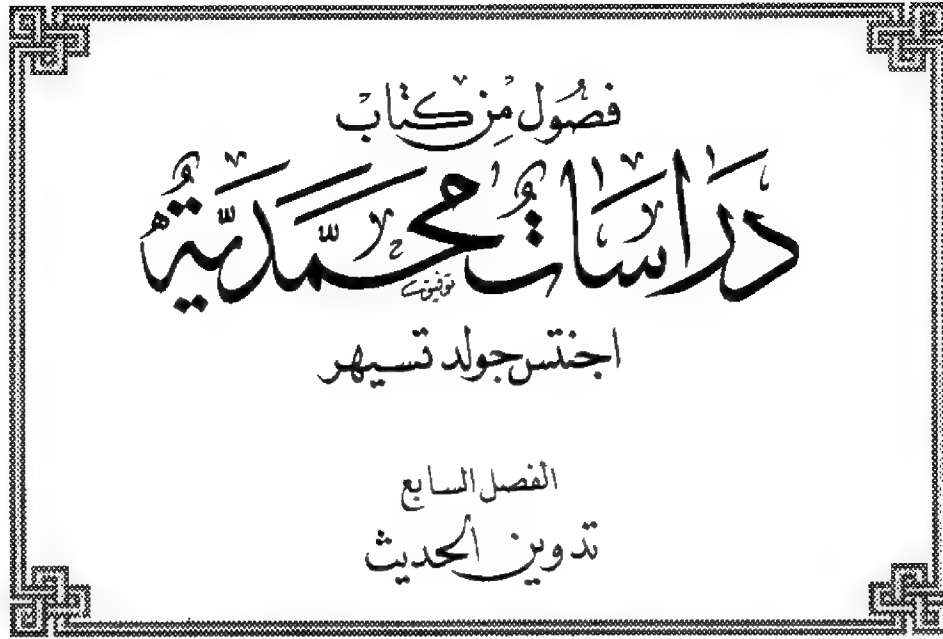 فصُول مِن كتاب
دَراسَاتٌ محَمَّديَّةٌ
توفيق
اجنتس جولد تسيهر
الفصل السابع
تدوين الحديث